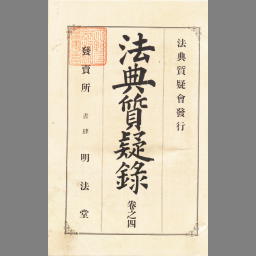 法典質疑會發行
法典質疑錄
卷之四
發賣所
書肆
明法堂